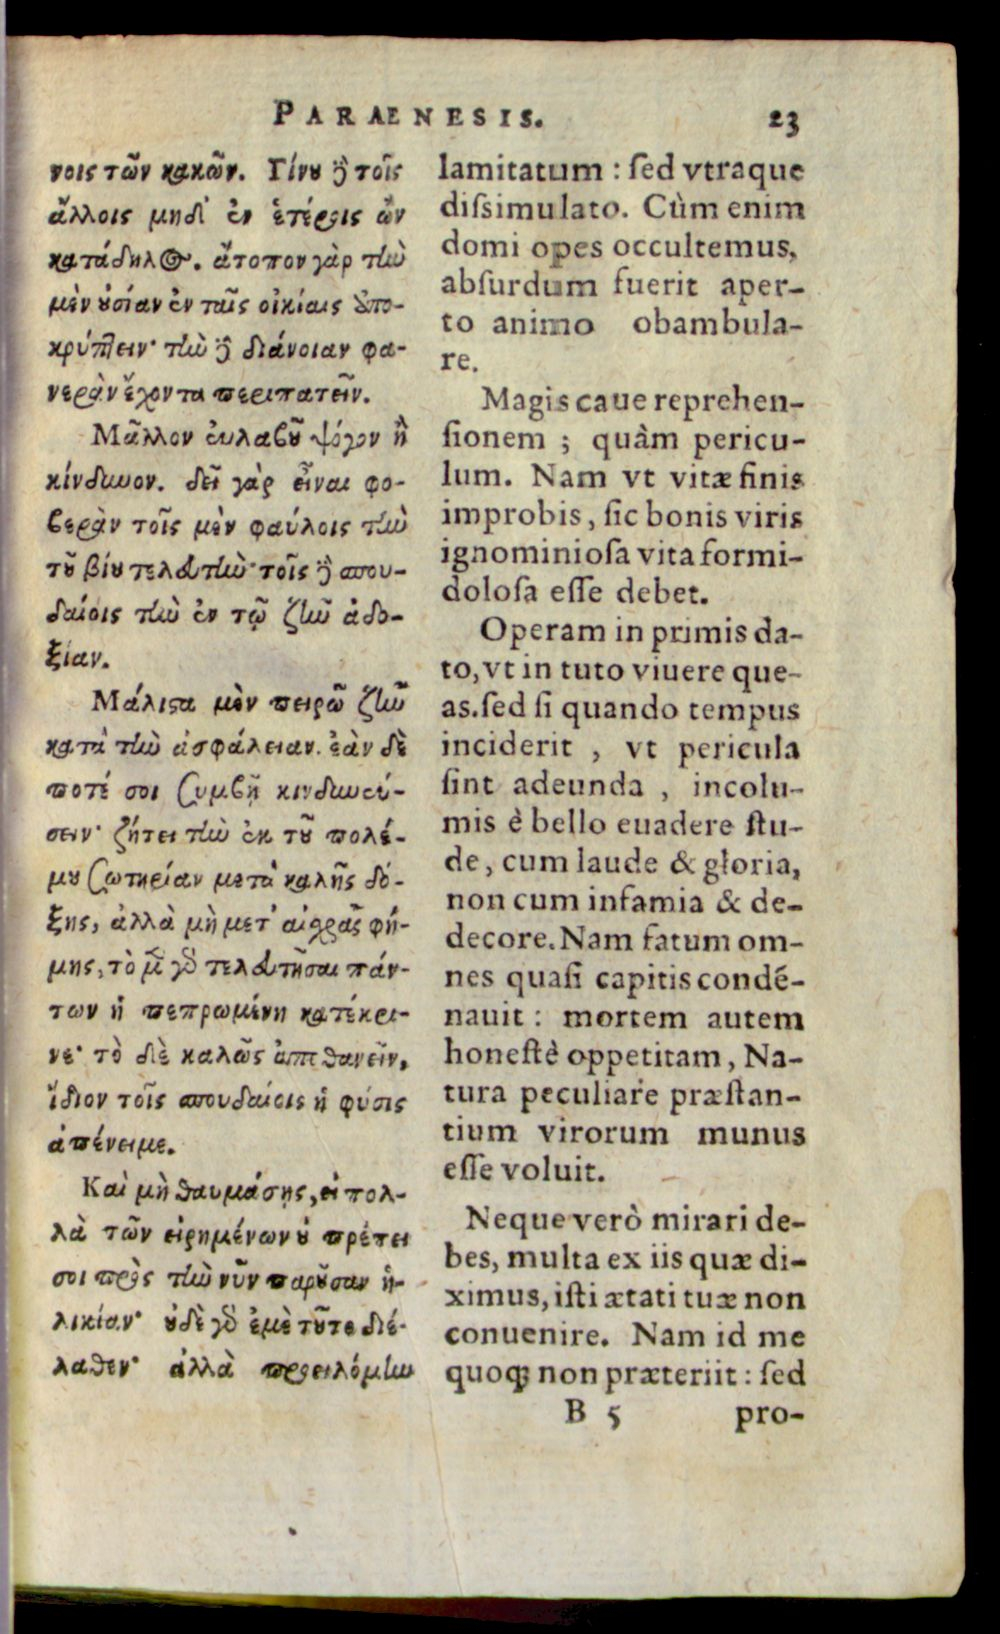 PARAENESIS. 23
νοις τῶν κακῶν. Γίνου δὲ τοῖς
ἄλλοις μηδ' ἐν ἑτέροις ὢν
κατάδηλος. ἄτοπον γὰρ τὴν
μὲν οὐσίαν ἐν ταῖς οἰκίαις ἀπο-
κρύπτειν· τὴν δὲ διάνοιαν φα-
νερὰν ἔχοντα περιπατεῖν.
Μᾶλλον εὐλαβοῦ ψόγον ἢ
κίνδυνον. δεῖ γὰρ εἶναι φο-
βερὰν τοῖς μὲν φαύλοις τὴν
τοῦ βίου τελευτὴν· τοῖς δὲ σπου-
δαίοις τὴν ἐν τῷ ζῆν ἀδο-
ξίαν.
Μάλιστα μὲν πειρῶ ζῆν
κατὰ τὴν ἀσφάλειαν. ἐὰν δὲ
ποτέ σοι συμβῇ κινδυνεύ-
σειν· ζήτει τὴν ἐκ τοῦ πολέ-
μου σωτηρίαν μετὰ καλῆς δό-
ξης, ἀλλὰ μὴ μετ' αἰσχρᾶς φή-
μης, τὸ μὲν γὰρ τελευτῆσαι πάν-
των ἡ πεπρωμένη κατέκρι-
νε· τὸ δὲ καλῶς ἀποθανεῖν,
ἴδιον τοῖς σπουδαίοις ἡ φύσις
ἀπένειμε.
Καὶ μὴ θαυμάσῃς, εἰ πολ-
λὰ τῶν εἰρημένων οὐ πρέπει
σοι πρὸς τὴν νῦν παροῦσαν ἡ-
λικίαν· οὐδὲ γὰρ ἐμὲ τοῦτο διέ-
λαθεν· ἀλλὰ προειλόμην
lamitatum : sed vtraque
dissimulato. Cùm enim
domi opes occultemus,
absurdum fuerit aper-
to animo obambula-
re.
Magis caue reprehen-
sionem ; quàm pericu-
lum. Nam vt vitæ finis
improbis, sic bonis viris
ignominiosa vita formi-
dolosa esse debet.
Operam in primis da-
to, vt in tuto viuere que-
as. sed si quando tempus
inciderit , vt pericula
sint adeunda , incolu-
mis è bello euadere stu-
de, cum laude & gloria,
non cum infamia & de-
decore. Nam fatum om-
nes quasi capitis condé-
nauit : mortem autem
honestè oppetitam, Na-
tura peculiare præstan-
tium virorum munus
esse voluit.
Neque verò mirari de-
bes, multa ex iis quæ di-
ximus, isti ætati tuæ non
conuenire. Nam id me
quoq; non præteriit : sed
B 5 pro-